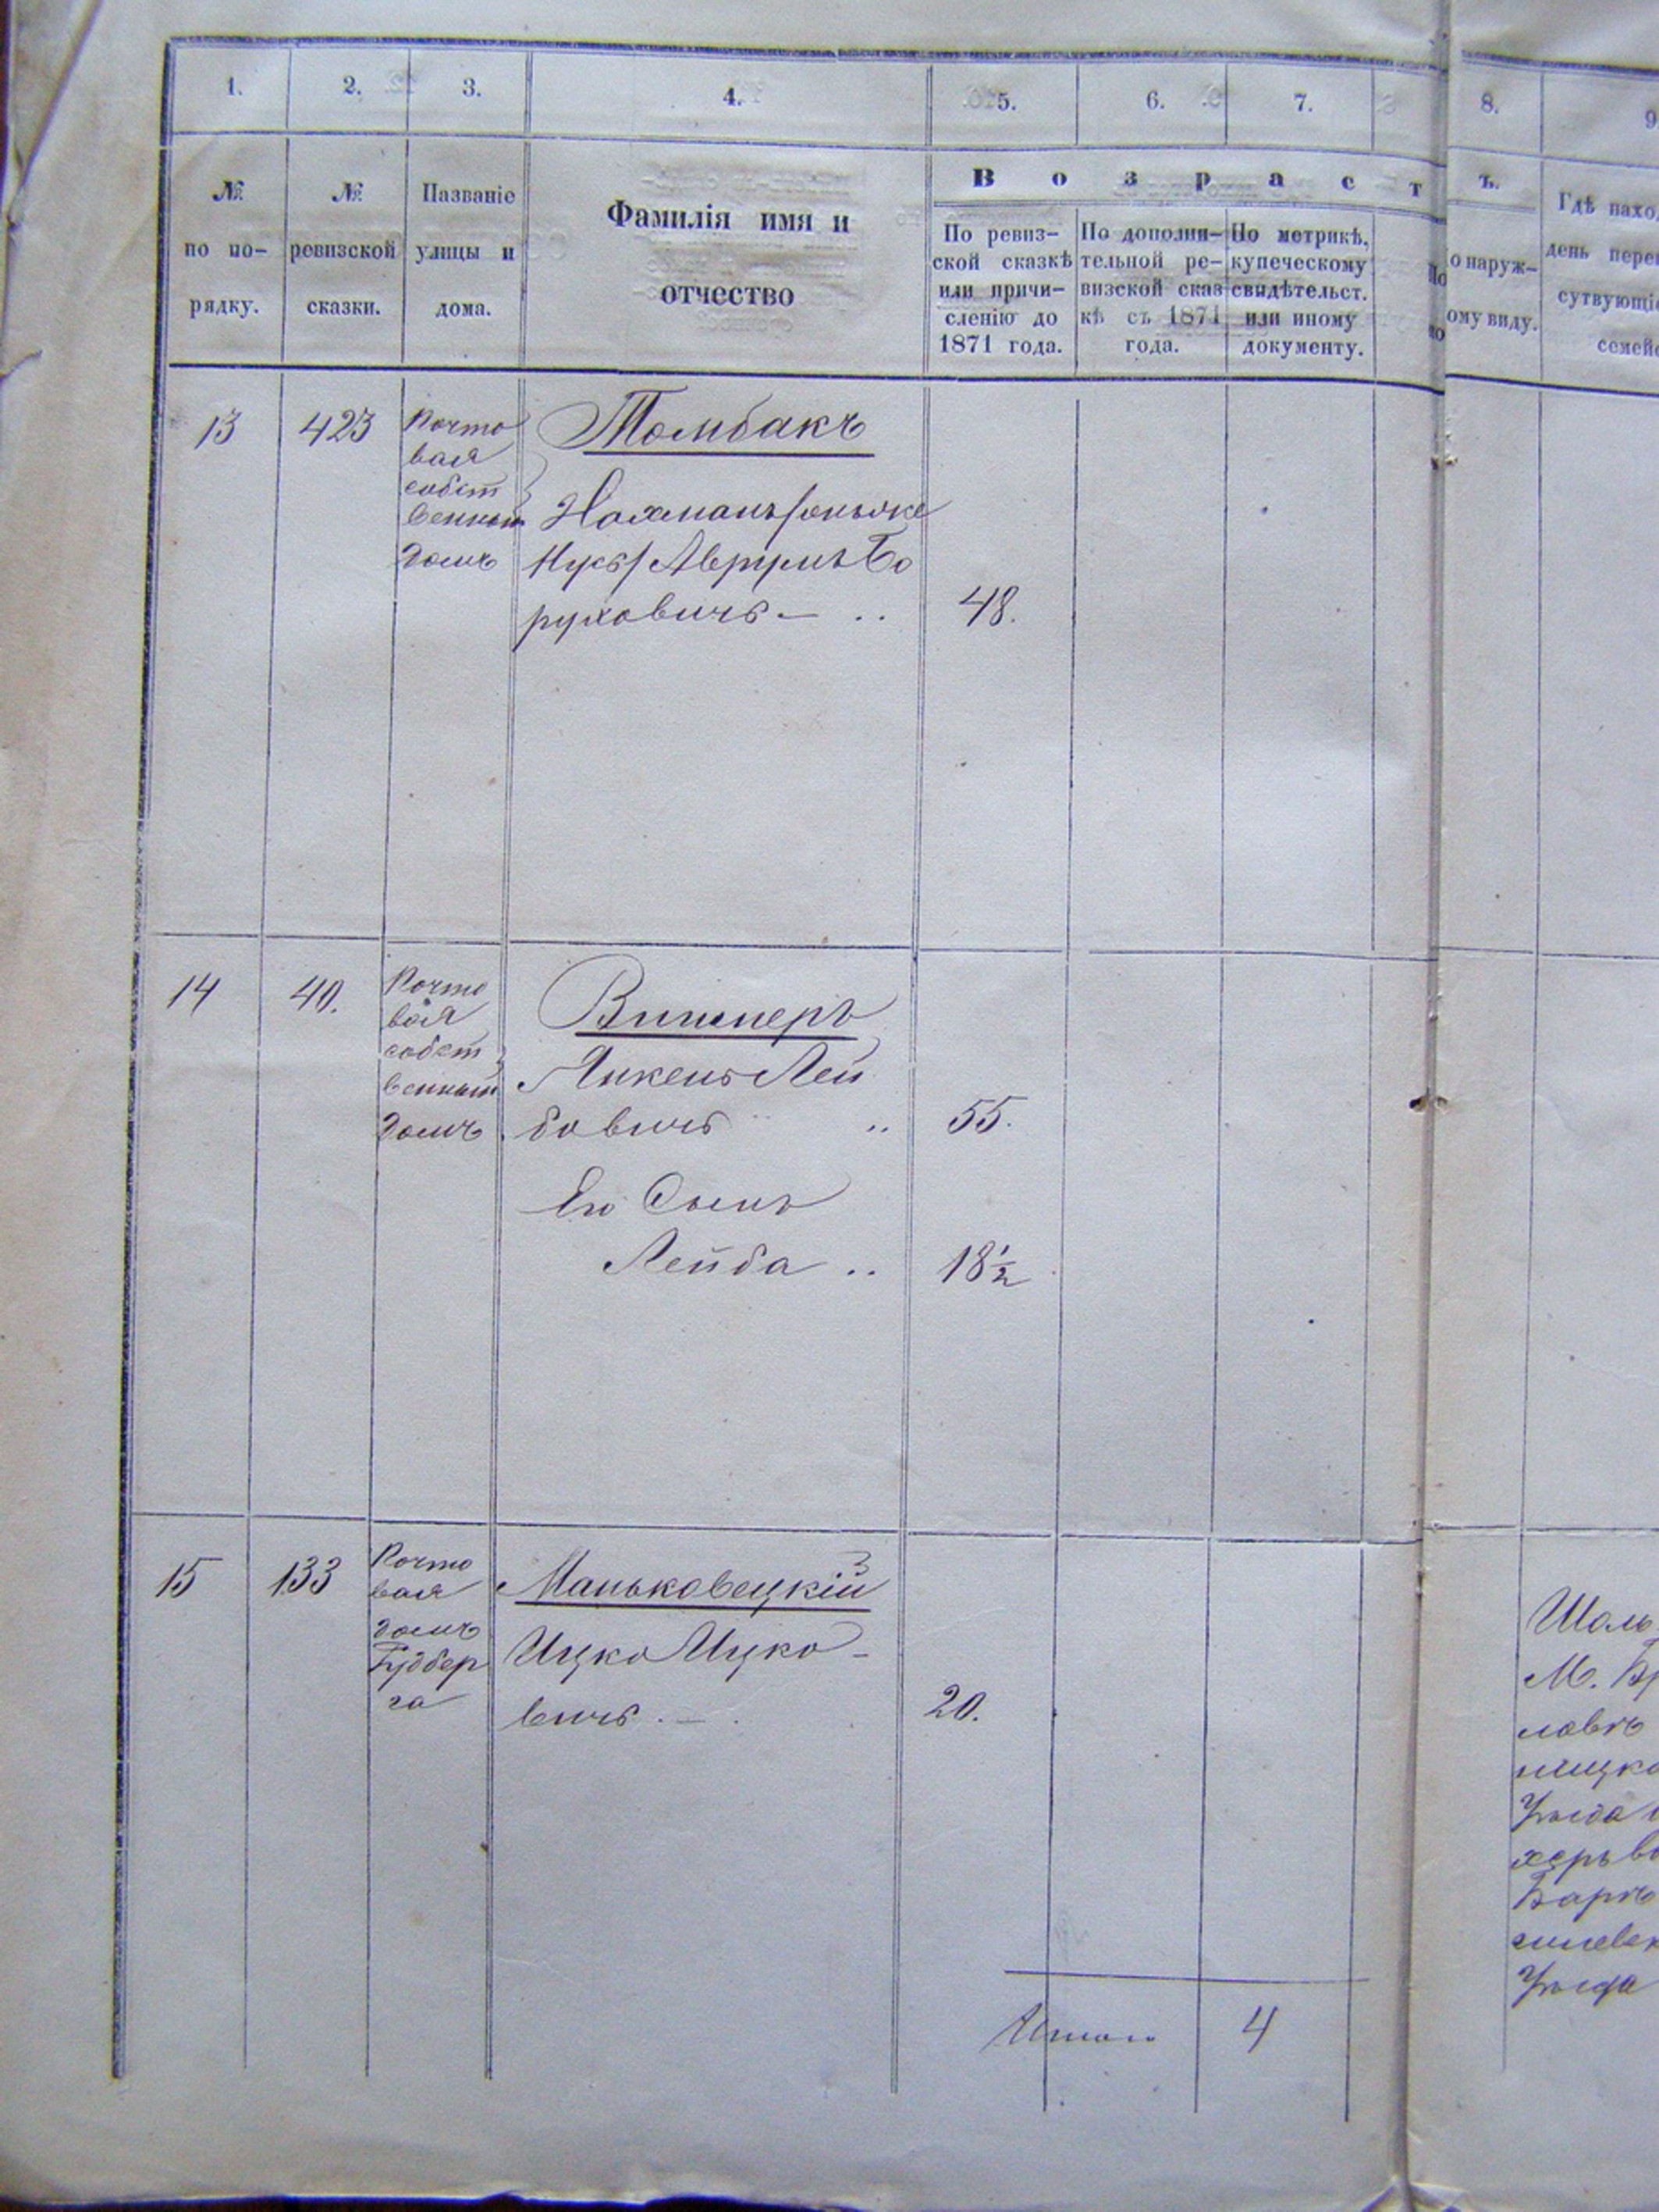 1. 2. 3. 4. 5. 6. 7. 8. 9
№ по по- рядку.
№ ревизской сказки.
Названіе улицы и дома.
Фамилія имя и
отчество
Возраст ъ.
По ревиз-
ской сказкѣ
или причи-
сленію до
1871 года.
По дополни-
тельной ре-
визской сказ
кѣ съ 1871
года.
По метрикѣ,
купеческому
свидѣтельст.
или иному
документу.
о наруж-
ому виду.
Гдѣ нахо
день пере
сутвующі
семей
13 423
Почто
вая
собст
венный
домъ
Томбакъ
Нахманъ
Аврумъ Бо
руховичъ — .. 48.
14 40.
Почто
вая
собст
венный
домъ
Вишнеръ
Янкель Лей
бовичъ .. 55.
Его Сынъ
Лейба .. 18½
15 133
Почто
вая
домъ
Гудбер
га
Маньковецкій
Ицко Ицко-
вичъ. — . 20.
Итого 4
Шаль
М. Бр
Уѣзда
Баръ
Уѣзда